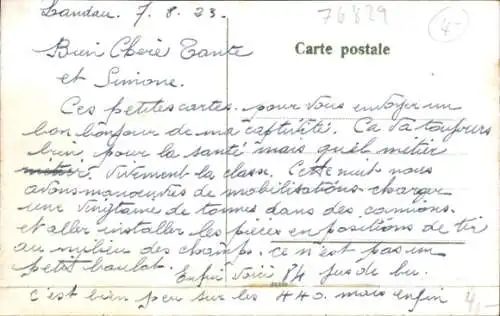 Landau. 7.8.23.
76829
4.-
Bien Chère Tante
Carte postale
et Simone.
Ces petites cartes pour vous envoyer un
bon bonjour de ma captivité. Ca va toujours
bien pour la santé mais quel métier
vivement la classe. Cette nuit nous
avons manoeuvres de mobilisations charger
une vingtaine de tonnes dans des camions
et aller installer les pièces en positions de tir
au milieu des champs. ce n'est pas un
petit boulot. Enfin voici 84 jus de bu.
c'est bien peu sur les 440. mais enfin
4,-